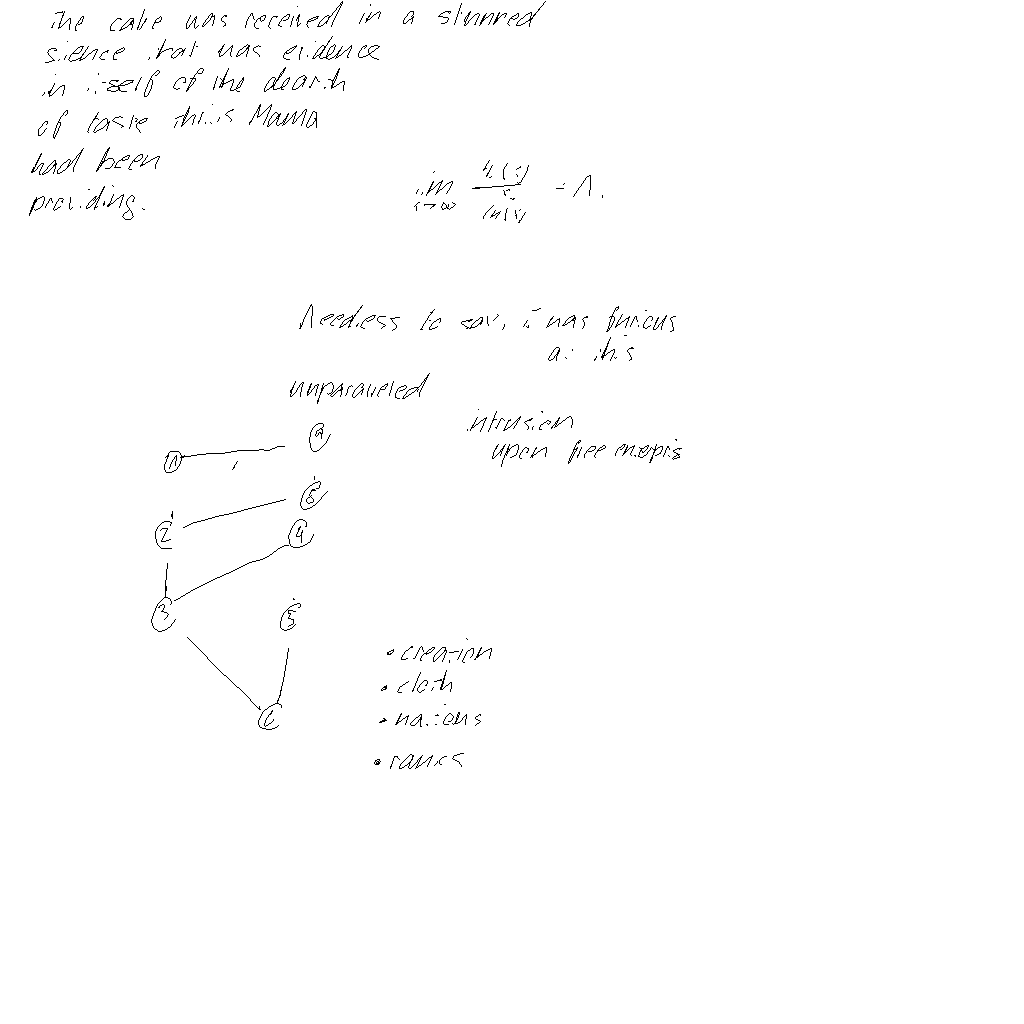 The cake was received in a stunned
silence that was evidence
in itself of the dearth
of taste this Mama
had been
providing.
lim = 1.
x→∞
ln(x)
Needless to say, I was furious
at this
unparalleled
intrusion
upon free enterpris
1
2
3
4
5
6
• creation
• cloth
• nations
• ranks